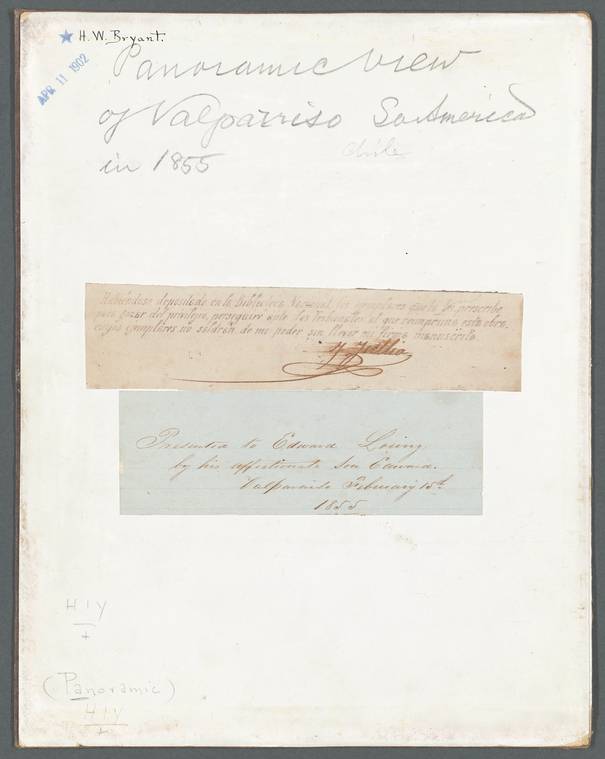 H. W. Bryant.
APR 11 1902
Panoramic view
of Valparriso So America
Chile
in 1855
Habiéndose depositado en la Biblioteca Nacional los ejemplares que la lei prescribe
para gozar del privilejio, perseguiré ante los Tribunales al que reimprima esta obra,
cuyos ejemplares no saldrán de mi poder sin llevar mi firma manuscrita
Presented to Edward Loring
by his affectionate Son Edward.
Valparaiso February 15th
1855
H I Y
+
(Panoramic)
H I Y
+